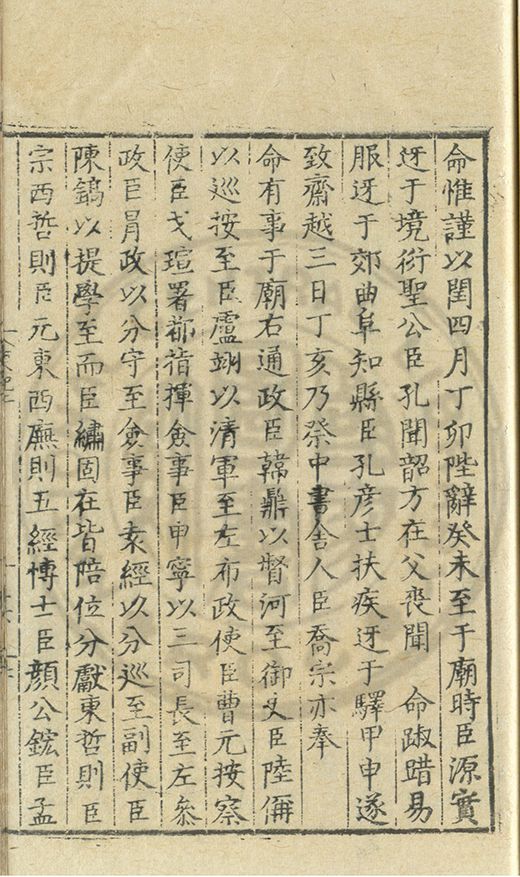 命惟謹以閏四月丁卯陛辭癸未至于廟時臣源實
迓于境衍聖公臣孔聞韶方在父喪聞　命踧踖易
服迓于郊曲阜知縣臣孔彦士扶疾迓于驛甲申遂
致齋越三日丁亥乃祭中書舍人臣喬宗亦奉
命有事于廟右通政臣韓鼎以督河至御史臣陸偁
以巡按至臣盧翊以清軍至左布政使臣曹元按察
使臣戈瑄署都指揮僉事臣申寧以三司長至左叅
政臣冐政以分守至僉事臣袁經以分巡至副使臣
陳鎬以提學至而臣繡固在皆陪位分獻東哲則臣
宗西哲則臣元東西廡則五經博士臣顔公鋐臣孟